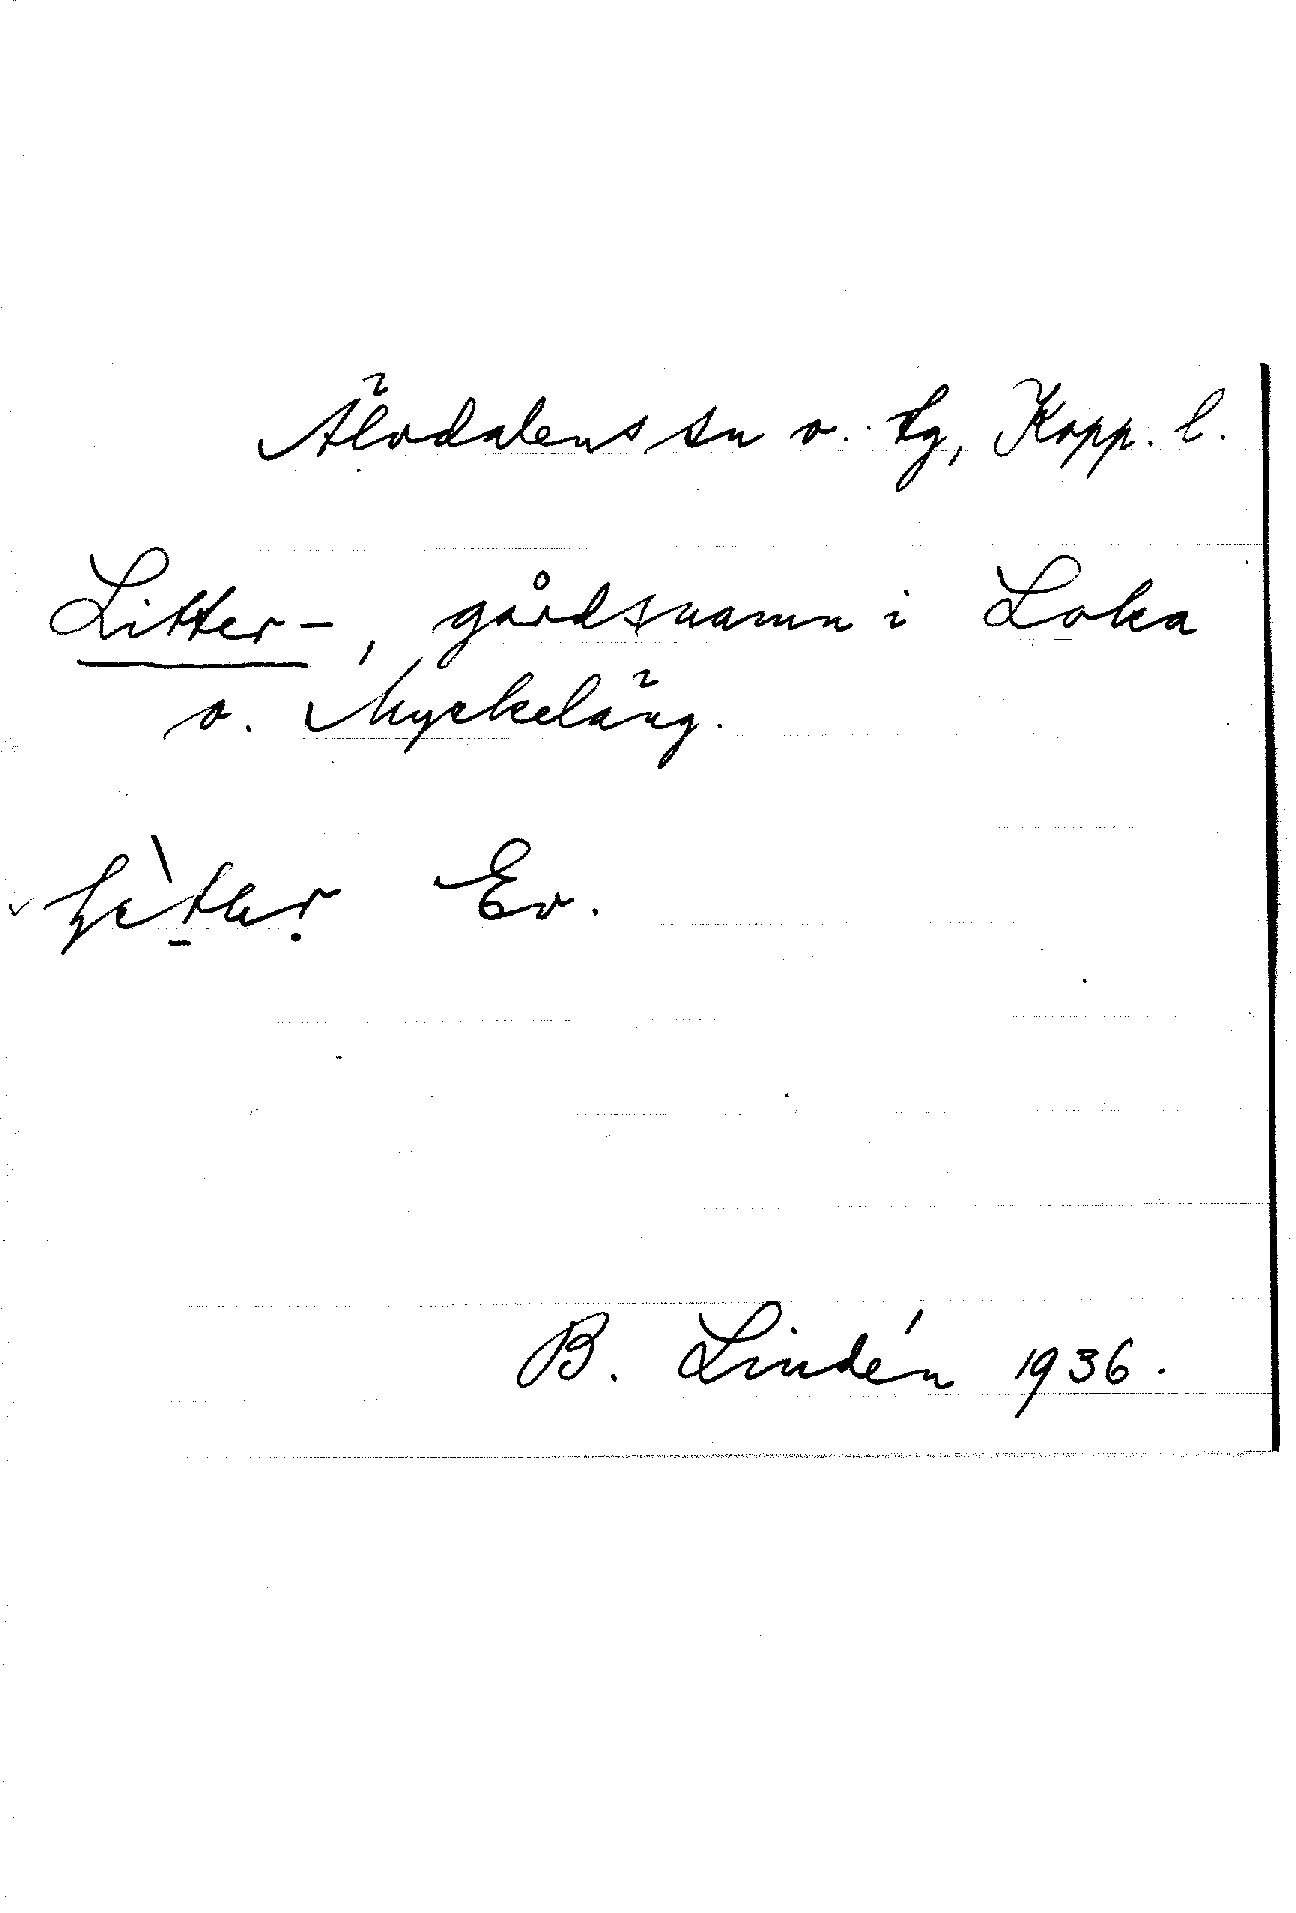 Älvdalens sn o. tg, Kopp. l.
Litter-, gårdsnamn i Loka
o. Myckeläng.
Ev.
B. Lindén 1936.